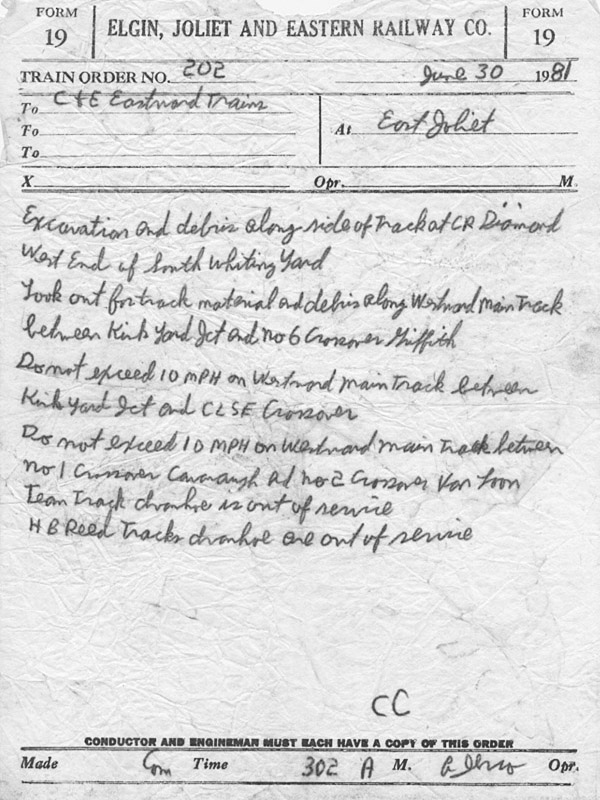 FORM 19
ELGIN, JOLIET AND EASTERN RAILWAY CO.
FORM 19
TRAIN ORDER NO. 202 June 30 1981
To C&E Eastward Trains
To
To
At East Joliet
X Opr. M
Excavation and debris along side of Track at CR Diamond
West End of South Whiting Yard
Look out for track material and debris along Westward Main Track
between Kirk Yard Jct and No 6 Crossover Griffith
Do not exceed 10 MPH on Westward Main Track between
Kirk Yard Jct and CLSE Crossover
Do not exceed 10 MPH on Westward main Track between
No 1 Crossover Cavanaugh and No 2 Crossover Van Loon
Team Track Ivanhoe is out of service
H B Reed Tracks Ivanhoe are out of service
CC
CONDUCTOR AND ENGINEMAN MUST EACH HAVE A COPY OF THIS ORDER
Made Com Time 302 A M. Opr.